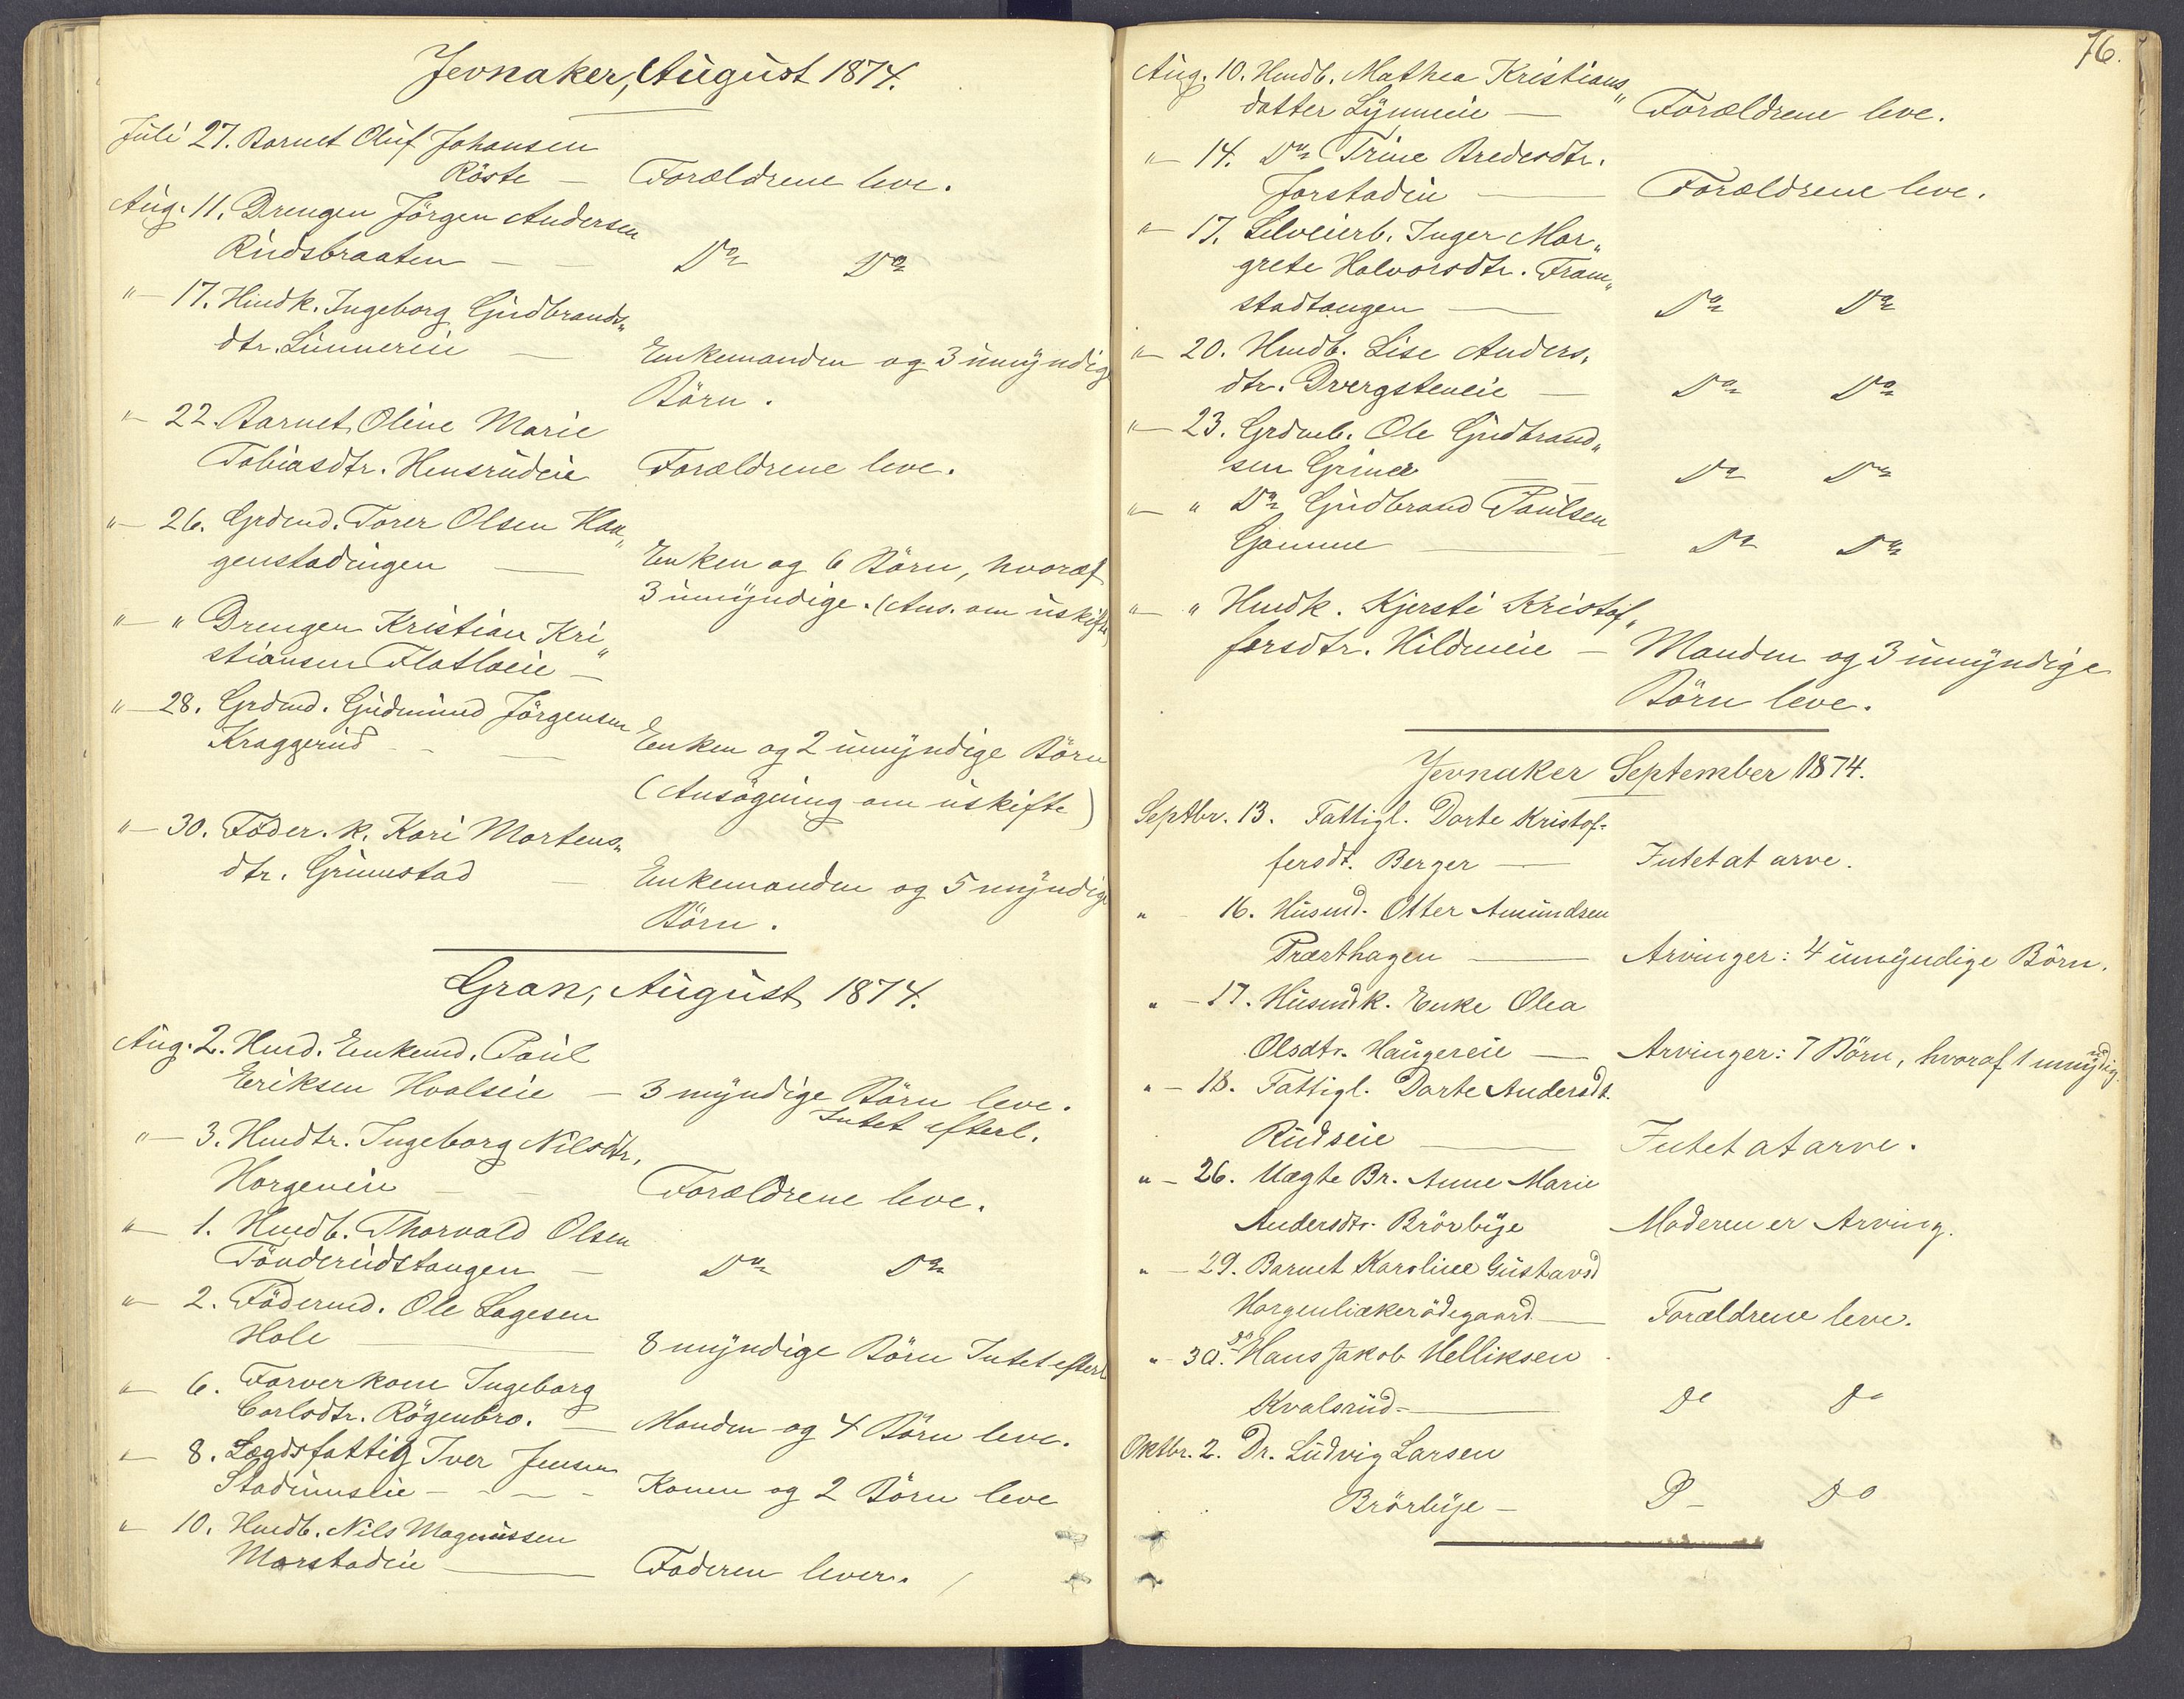 Jevnaker, August 1874.
Juli 27. Barnet Oluf Johansen
Röste — Forældrene leve.
Aug. 11. Drengen Jörgen Andersen
Rudsbraaten — — Do Do
"— 17. Hmdk. Ingeborg Gudbrands„
dtr. Lunnereie — Enkemanden og 3 umyndige
Börn.
"— 22. Barnet Oline Marie
Tobiasdtr. Hensrudeie Forældrene leve.
"— 26. Grdmd. Torer Olsen Haa„
genstadingen — Enken og 6 Börn, hvoraf
3 umyndige. (Ans. om uskifte)
"— " Drengen Kristian Kri„
stiansen Flatlaeie —
"— 28. Grdmd. Gudmund Jörgensen
Kraggerud - — Enken og 2 umyndige Börn
(Ansögning om uskifte)
"— 30. Föder. k. Kari Mortens„
dtr. Grimstad — Enkemanden og 5 myndige
Börn.
Gran, August 1874.
Aug. 2. Hmd. Enkemd. Paul
Eriksen Hvalseie — 3 myndige Börn leve.
Intet efterl.
"— 3. Hmdtr. Ingeborg Nilsdtr.
Horgeneie — - Forældrene leve.
"— 1. Hmdb. Thorvald Olsen
Tönderudstangen — Do Do
"— 2. Födermd. Ole Lagesen
Hole — 8 myndige Börn Intet efterl
"— 6. Farverkone Ingeborg
Carlsdtr. Rögenbro. — Manden og 4 Börn leve.
"— 8. Lægdsfattig Iver Jensen
Stadumseie - - — - Konen og 2 Börn leve
"— 10. Hmdb. Nils Magnussen
Morstadeie — Faderen lever.
76.
Aug. 10. Hmdb. Mathea Kristians„
datter Lynneeie — Forældrene leve.
"— 14. Do Trine Bredesdtr.
Jorstadeie — Forældrene leve.
"— 17. Selveierb. Inger Mar„
grete Halvorsdtr. Fram„
stadtangen — Do Do
"— 20. Hmdb. Lise Anders„
dtr. Dvergsteneie — Do Do
"— 23. Grdmb. Ole Gudbrand„
sen Griner — Do Do
"— " Do Gudbrand Paulsen
Gamme — Do Do
"— " Hmdk. Kjersti Kristof„
fersdtr. Hildeneie — Manden og 3 umyndige
Börn leve.
Jevnaker September 1874.
Septbr. 13. Fattigl. Dorte Kristof-
fersdt. Berger — Intet at arve.
" - 16. Husmd. Otter Amundsen
Præsthagen — Arvinger: 4 umyndige Börn.
" - 17. Husmdk. Enke Olea
Olsdtr. Haugereie — Arvinger: 7 Börn, hvoraf 1 umyndig.
" - 18. Fattigl. Dorte Andersdt.
Rudseie — Intet at arve.
" - 26. Uægte Br. Anne Marie
Andersdtr. Brörbye Moderen er Arving.
" - 29. Barnet Karoline Gustavsd
Horgenliækerödegaard — Forældrene leve.
" - 30. do Hans Jakob Helliksen
Kvalsrud - — Do Do
Oktbr. 2. Dr. Ludvig Larsen
Brörbye — D- Do